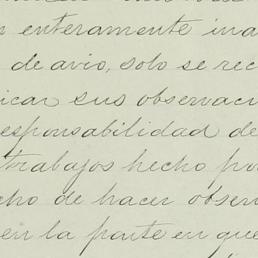 n enteramente ina
de avio, solo se rec
icar sus observaci
esponsabilidad de
trabajos hecho po
cho de hacer obser
en la parte en que